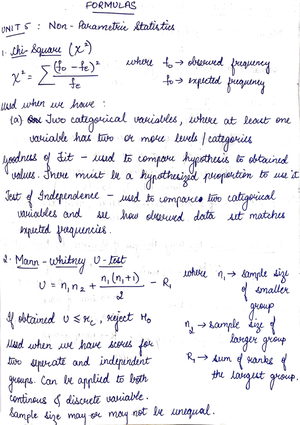 FORMULAS
UNIT 5 : Non-Parametric Statistics
1. Chi-Square (χ²)
χ² = Σ (fo - fE)² / fE where fo → observed frequency
fE → expected frequency
Used when we have :
(a) Two categorical variables, where at least one
variable has two or more levels / categories
Goodness of fit – used to compare hypothesis to obtained
values. There must be a hypothesized proportion to use it
Test of Independence – used to compare two catigorical
variables and see how observed data set matches
expected frequencies.
2. Mann-Whitney U-test
U = n₁n₂ + n₁(n₁+1) / 2 - R₁ where n₁ → sample size
of smaller
group
If obtained U ≤ , reject H₀
n₂ → sample size of
larger group
Used when we have scores for
two seperate and independent
R₁ → sum of ranks of
the largest group.
groups. Can be applied to both
continous & discrete variable.
Sample size may or may not be unequal.